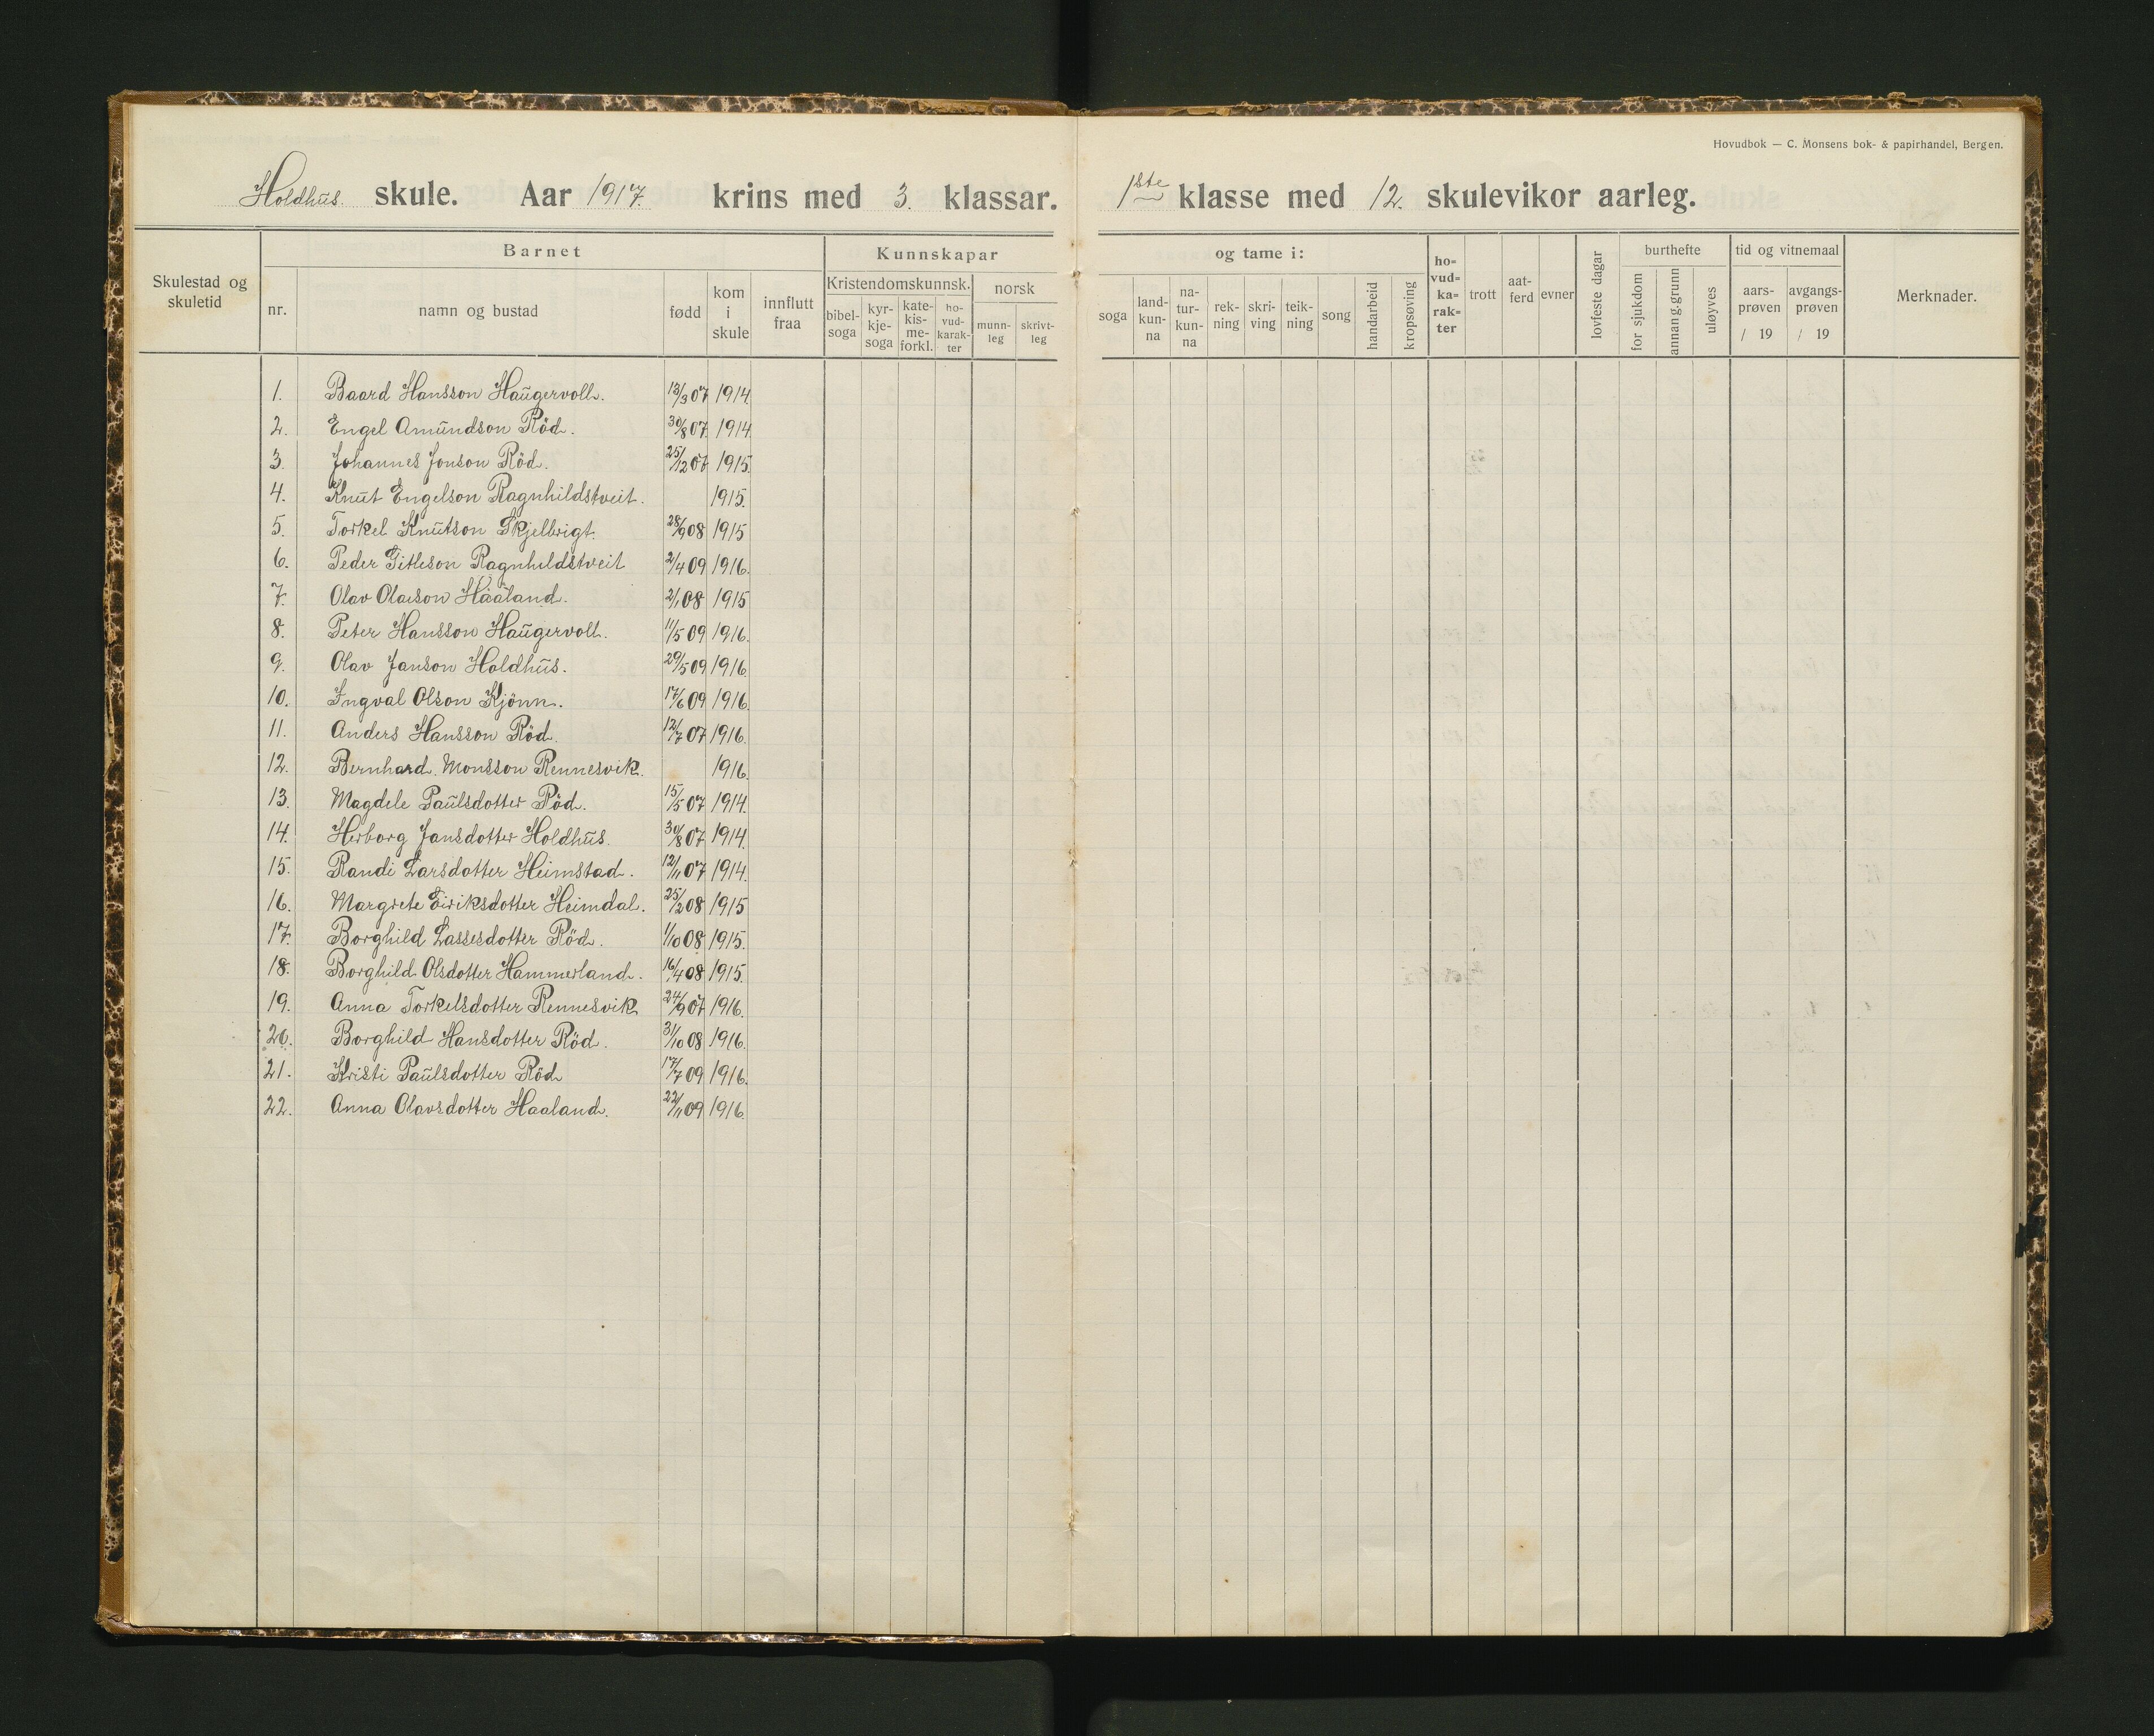 Hovudbok — C. Monsens bok- & papirhandel, Bergen.
Holdhus skule. Aar 1917. krins med 3. klassar. 1ste klasse med 12. skulevikor aarleg.
Skulestad og skuletid
Barnet
nr.
namn og bustad
fødd
kom i skule
innflutt fraa
Kunnskapar
Kristendomskunnsk.
bibel-soga
kyr-kje-soga
kate-kis-me-forkl.
ho-vud-karak-ter
norsk
munn-leg
skrivt-leg
og tame i:
soga
land-kun-na
na-tur-kun-na
rek-ning
skri-ving
teik-ning
song
handarbeid
kropsøving
ho-vud-ka-rak-ter
trott
aat-ferd
evner
lovfeste dagar
burthefte
for sjukdom
annan g. grunn
uløyves
tid og vitnemaal
aars-prøven / 19
avgangs-prøven / 19
Merknader.
1. Baard Hansson Haugervoll. 13/3 07 1914
2. Engel Amundson Röd. 30/8 07. 1914.
3. Johannes Jonson Röd. 25/12 07 1915.
4. Knut Engelson Ragnhildstveit. 1915.
5. Torkel Knutson Skjelbrigt. 28/9 08 1915
6. Peder Titleson Ragnhildstveit 2/4 09 1916.
7. Olav Olavson Haaland. 2/1 08 1915
8. Peter Hansson Haugervoll. 11/5 09 1916.
9. Olav Janson Holdhus. 29/5 09 1916.
10. Ingval Olson Kjönn. 17/6 09 1916.
11. Anders Hansson Röd. 12/7 07 1916.
12. Bernhard. Monsson Rennesvik. 1916.
13. Magdele Paulsdotter Röd. 15/5 07 1914.
14. Herborg Jansdotter Holdhus. 30/8 07 1914.
15. Randi Larsdotter Heimstad. 12/11 07 1914.
16. Margrete Eiriksdotter Heimdal. 25/2 08 1915
17. Borghild Lassesdotter Röd. 1/10 08 1915.
18. Borghild Olsdotter Hammerland. 16/4 08 1915.
19. Anna Torkelsdotter Rennesvik 24/9 07 1916.
20. Borghild Hansdotter Röd. 31/10 08 1916.
21. Kristi Paulsdotter Röd 17/7 09 1916.
22. Anna Olavsdotter Haaland. 22/11 09 1916.